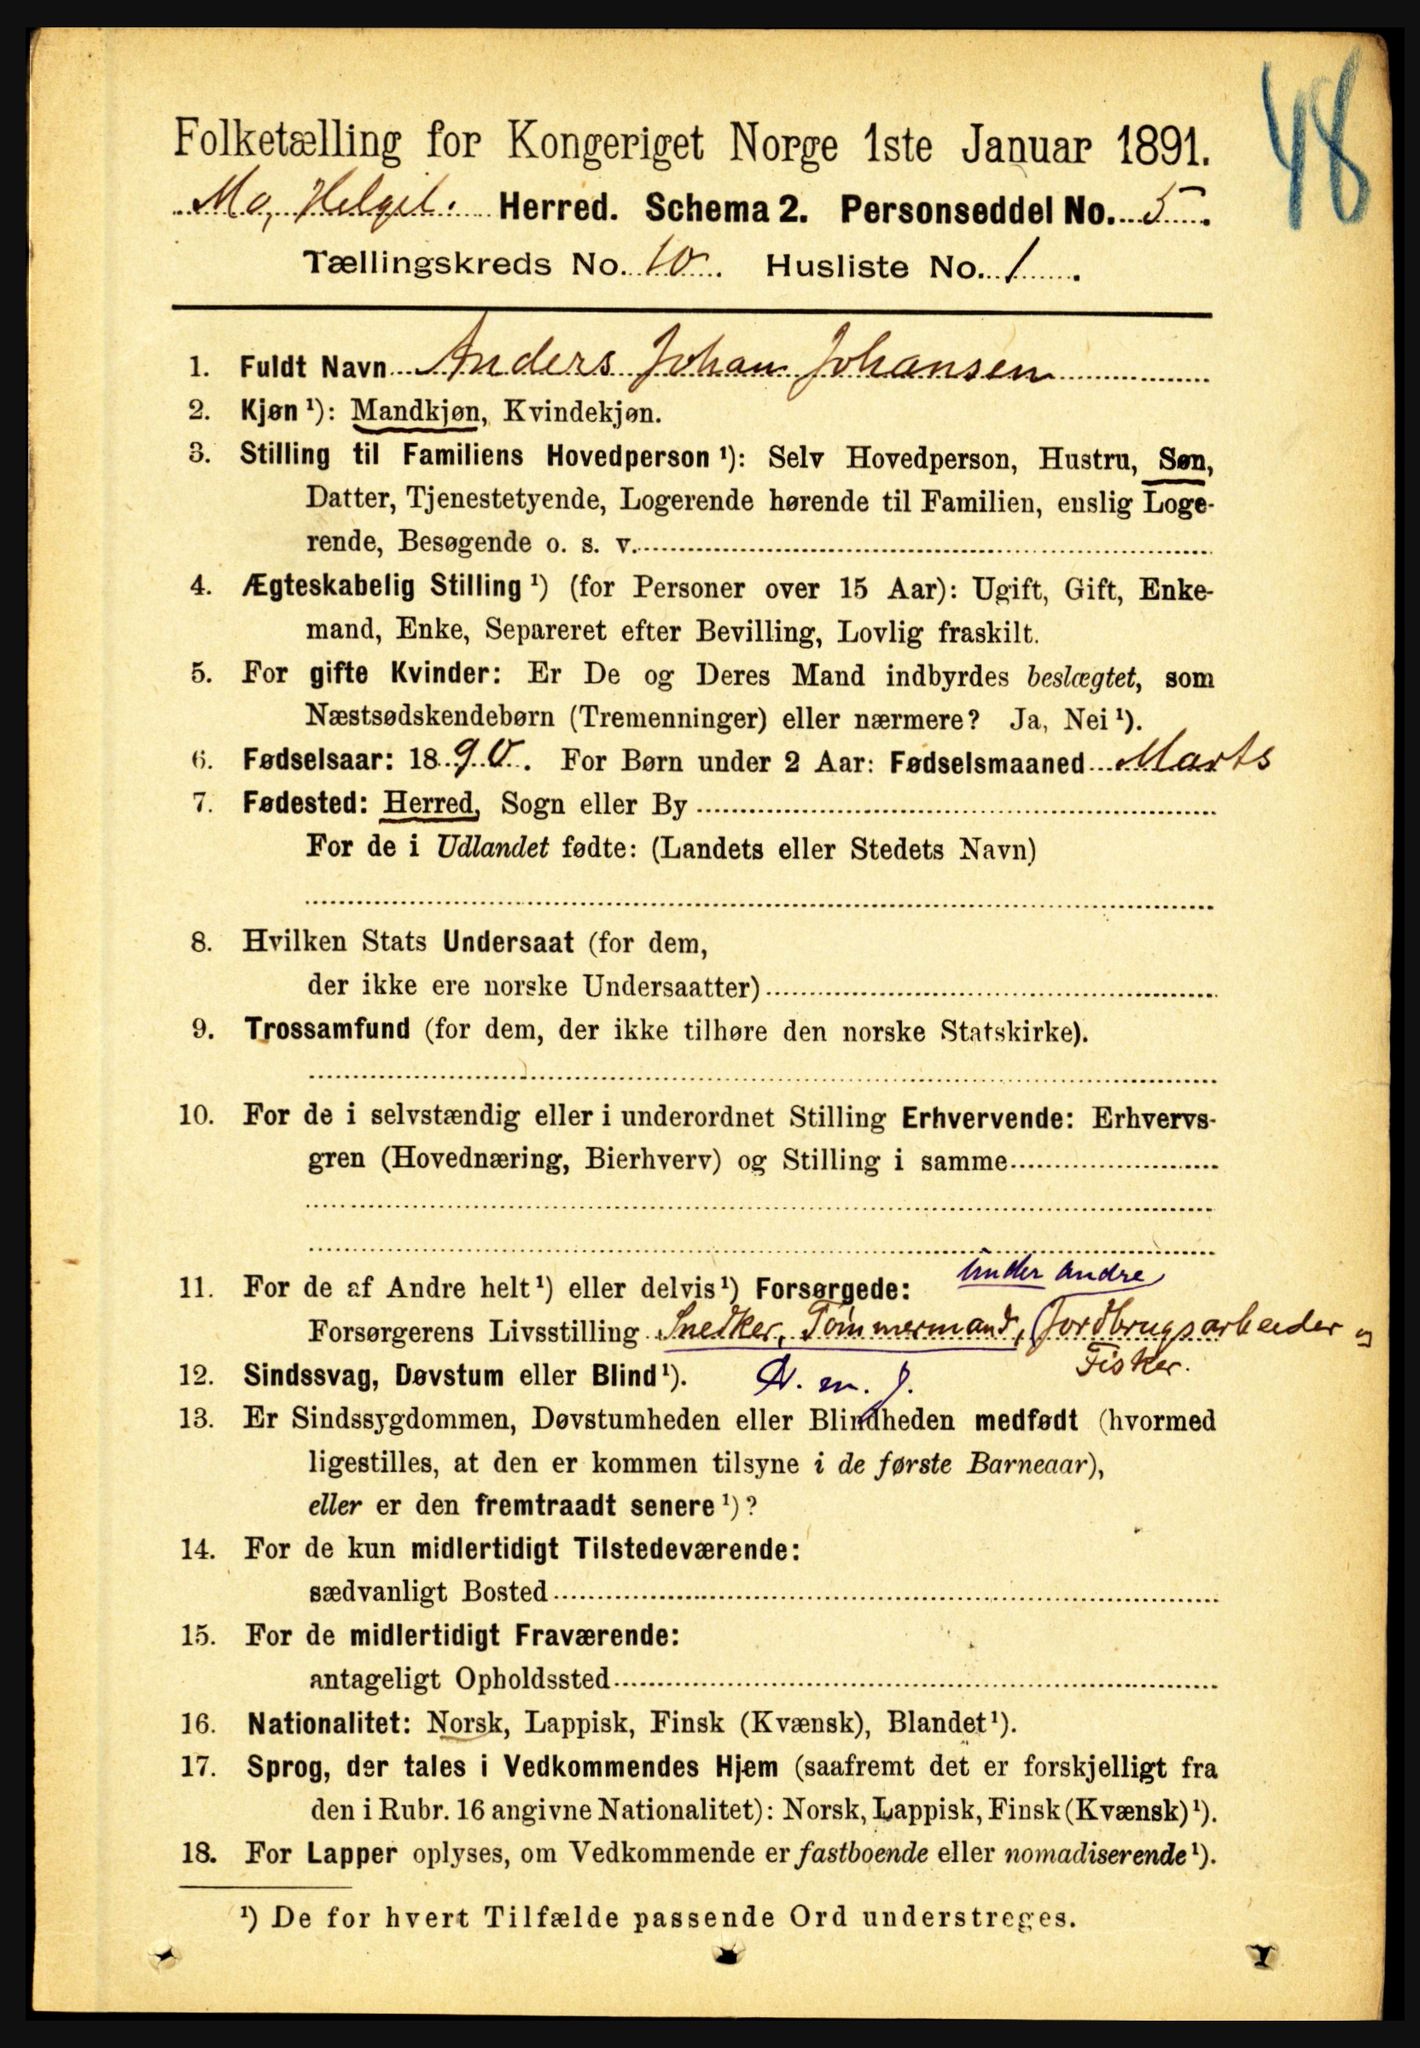 48
Folketælling for Kongeriget Norge 1ste Januar 1891.
Mo, Helgel. Herred. Schema 2. Personseddel No. 5.
Tællingskreds No. 10. Husliste No. 1.
1. Fuldt Navn Anders Johan Johansen
2. Kjøn ¹): Mandkjøn, Kvindekjøn.
3. Stilling til Familiens Hovedperson ¹): Selv Hovedperson, Hustru, Søn,
Datter, Tjenestetyende, Logerende hørende til Familien, enslig Loge-
rende, Besøgende o. s. v.
4. Ægteskabelig Stilling ¹) (for Personer over 15 Aar): Ugift, Gift, Enke-
mand, Enke, Separeret efter Bevilling, Lovlig fraskilt.
5. For gifte Kvinder: Er De og Deres Mand indbyrdes beslægtet, som
Næstsødskendebørn (Tremenninger) eller nærmere? Ja, Nei ¹).
6. Fødselsaar: 1890. For Børn under 2 Aar: Fødselsmaaned Marts
7. Fødested: Herred, Sogn eller By
For de i Udlandet fødte: (Landets eller Stedets Navn)
8. Hvilken Stats Undersaat (for dem,
der ikke ere norske Undersaatter)
9. Trossamfund (for dem, der ikke tilhøre den norske Statskirke).
10. For de i selvstændig eller i underordnet Stilling Erhvervende: Erhvervs-
gren (Hovednæring, Bierhverv) og Stilling i samme
under andre
11. For de af Andre helt ¹) eller delvis ¹) Forsørgede:
Forsørgerens Livsstilling Snedker, Tømmermand, Jordbrugsarbeider og
Fisker.
12. Sindssvag, Døvstum eller Blind ¹).
13. Er Sindssygdommen, Døvstumheden eller Blindheden medfødt (hvormed
ligestilles, at den er kommen tilsyne i de første Barneaar),
eller er den fremtraadt senere ¹)?
14. For de kun midlertidigt Tilstedeværende:
sædvanligt Bosted
15. For de midlertidigt Fraværende:
antageligt Opholdssted
16. Nationalitet: Norsk, Lappisk, Finsk (Kvænsk), Blandet ¹).
17. Sprog, der tales i Vedkommendes Hjem (saafremt det er forskjelligt fra
den i Rubr. 16 angivne Nationalitet): Norsk, Lappisk, Finsk (Kvænsk) ¹).
18. For Lapper oplyses, om Vedkommende er fastboende eller nomadiserende ¹).
¹) De for hvert Tilfælde passende Ord understreges.